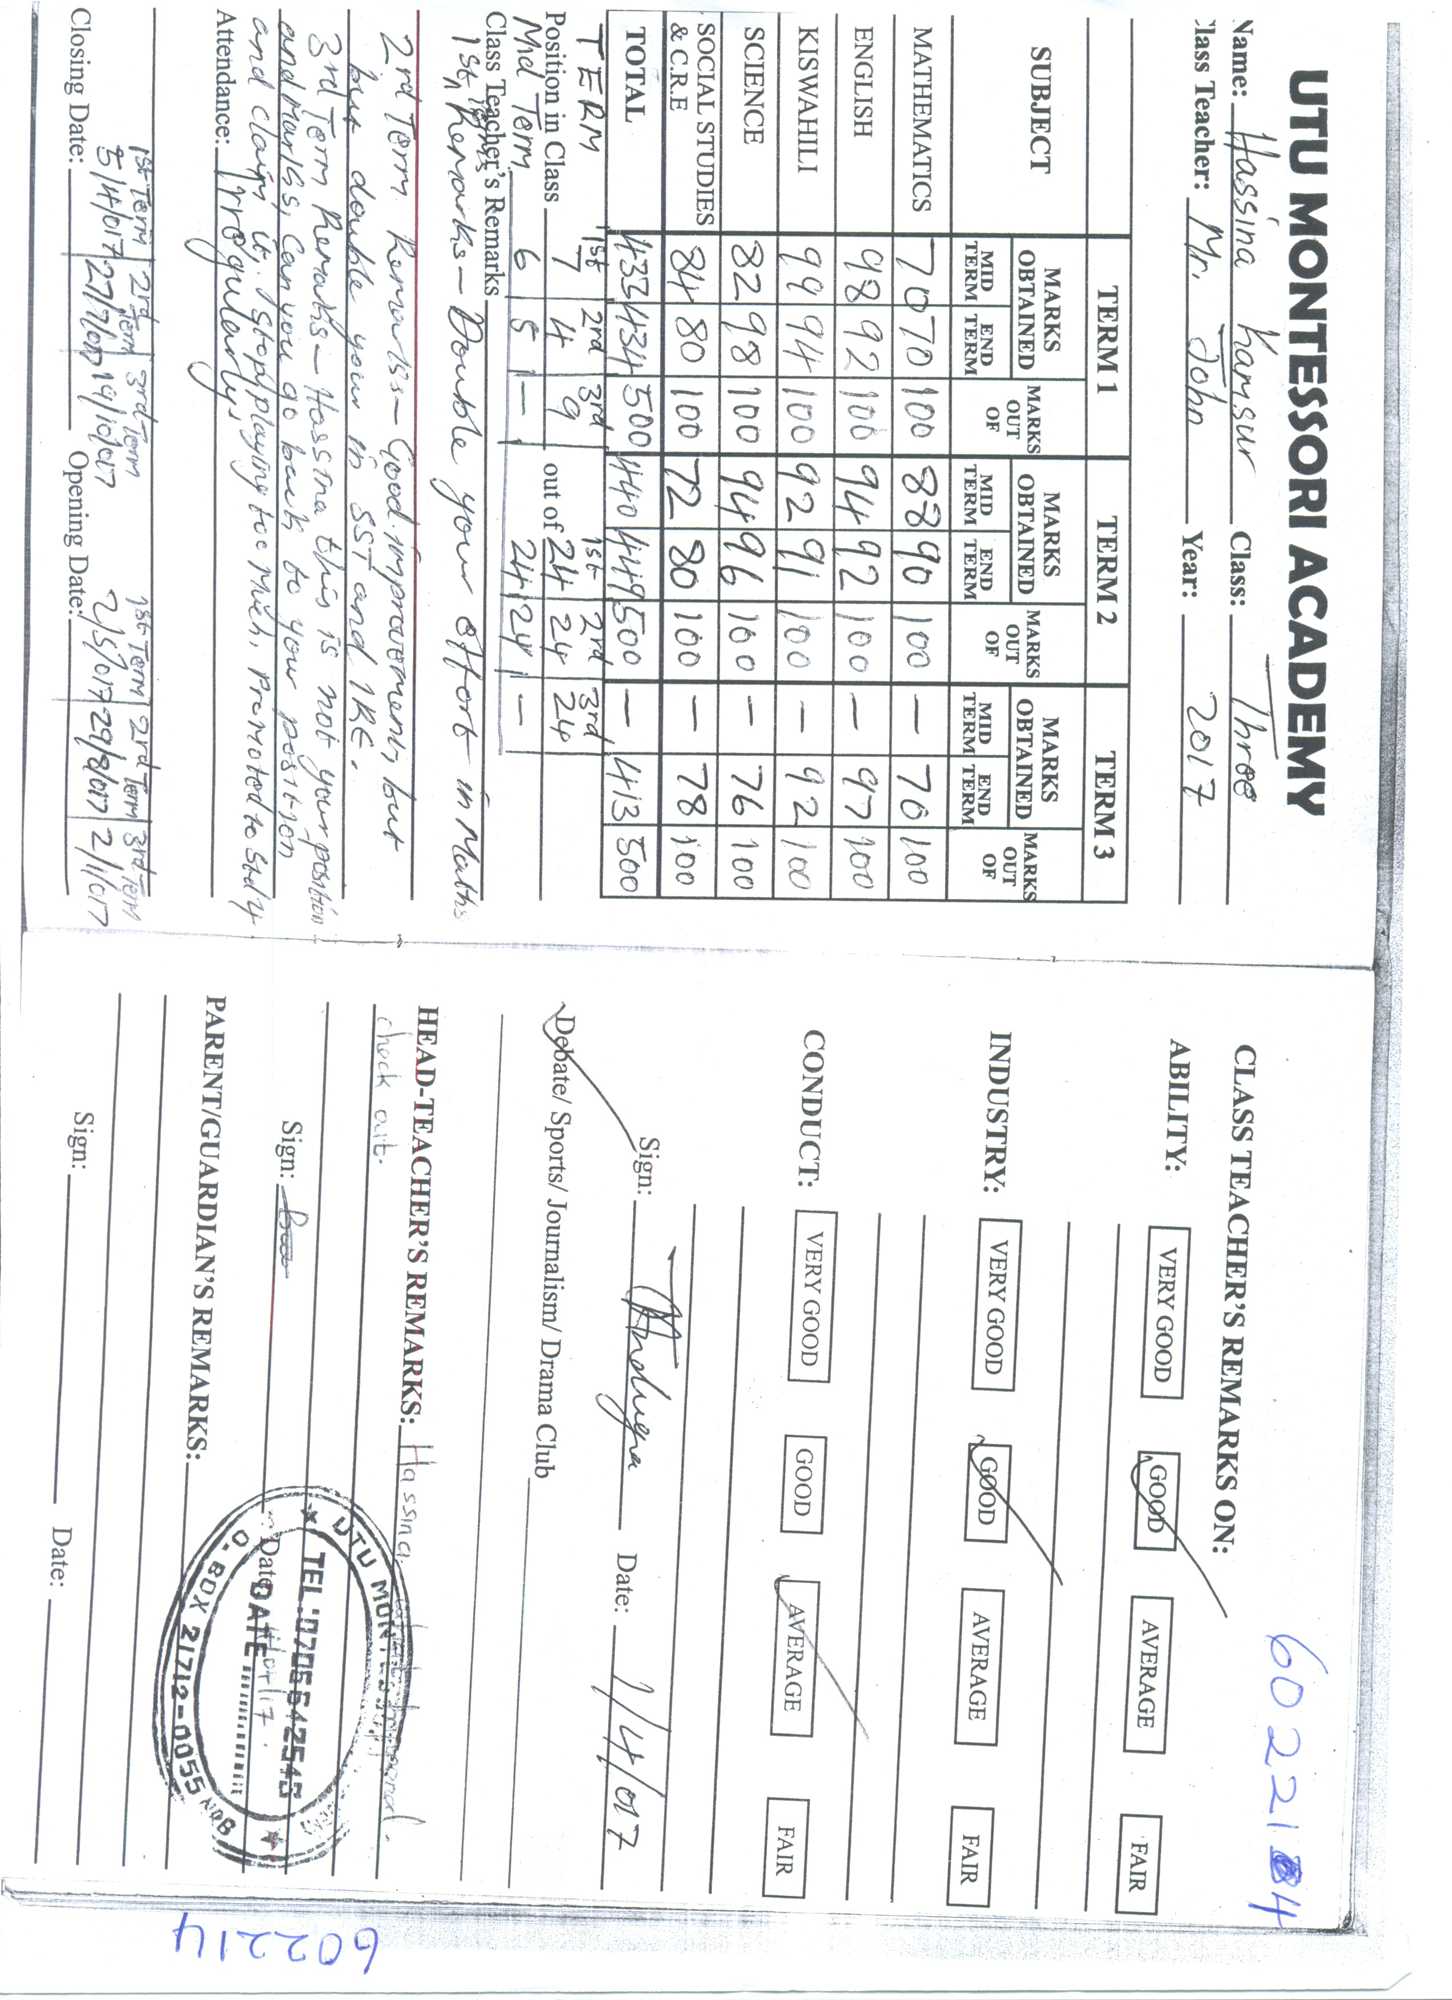 UTU MONTESSORI ACADEMY
Name: Hassina Kamsur Class: Three
Class Teacher: Mr. John Year: 2017
SUBJECT TERM 1 TERM 2 TERM 3
MARKS OBTAINED MARKS OUT OF MARKS OBTAINED MARKS OUT OF MARKS OBTAINED MARKS OUT OF
MID TERM END TERM MID TERM END TERM MID TERM END TERM
MATHEMATICS 70 70 100 88 90 100 — 70 100
ENGLISH 98 92 100 94 92 100 — 97 100
KISWAHILI 99 94 100 92 91 100 — 92 100
SCIENCE 82 98 100 94 96 100 — 76 100
SOCIAL STUDIES & C.R.E 84 80 100 72 80 100 — 78 100
TOTAL 433 434 500 440 449 500 — 413 500
TERM 1st 2nd 3rd 1st 2nd 3rd
Position in Class 7 4 9 out of 24 24 24
Mid Term 6 5 — 24 24 —
Class Teacher's Remarks
1st Term Remarks - Double your effort in Maths
2rd Term Remarks - Good improvement, but
but double your in SST and IRE.
3rd Term Remarks - Hassina this is not your position
and marks, can you go back to your position
and claim it. Stop playing too much, promoted to std 4
Attendance: Irregularly
1st Term 2rd Term 3rd Term 1st Term 2rd Term 3rd Term
Closing Date: 5/4/017 27/7/017 19/10/017 Opening Date: 2/5/017 29/8/017 2/1/017
602214
CLASS TEACHER'S REMARKS ON:
ABILITY: VERY GOOD GOOD AVERAGE FAIR
INDUSTRY: VERY GOOD GOOD AVERAGE FAIR
CONDUCT: VERY GOOD GOOD AVERAGE FAIR
Sign: Date: 1/4/017
Debate/ Sports/ Journalism/ Drama Club
HEAD-TEACHER'S REMARKS: Hassina
check out.
Sign: Date:
UTU MONTESSORI
TEL: 0706542545
DATE
BOX 21712-0055 NRB
PARENT/GUARDIAN'S REMARKS:
Sign: Date:
602214